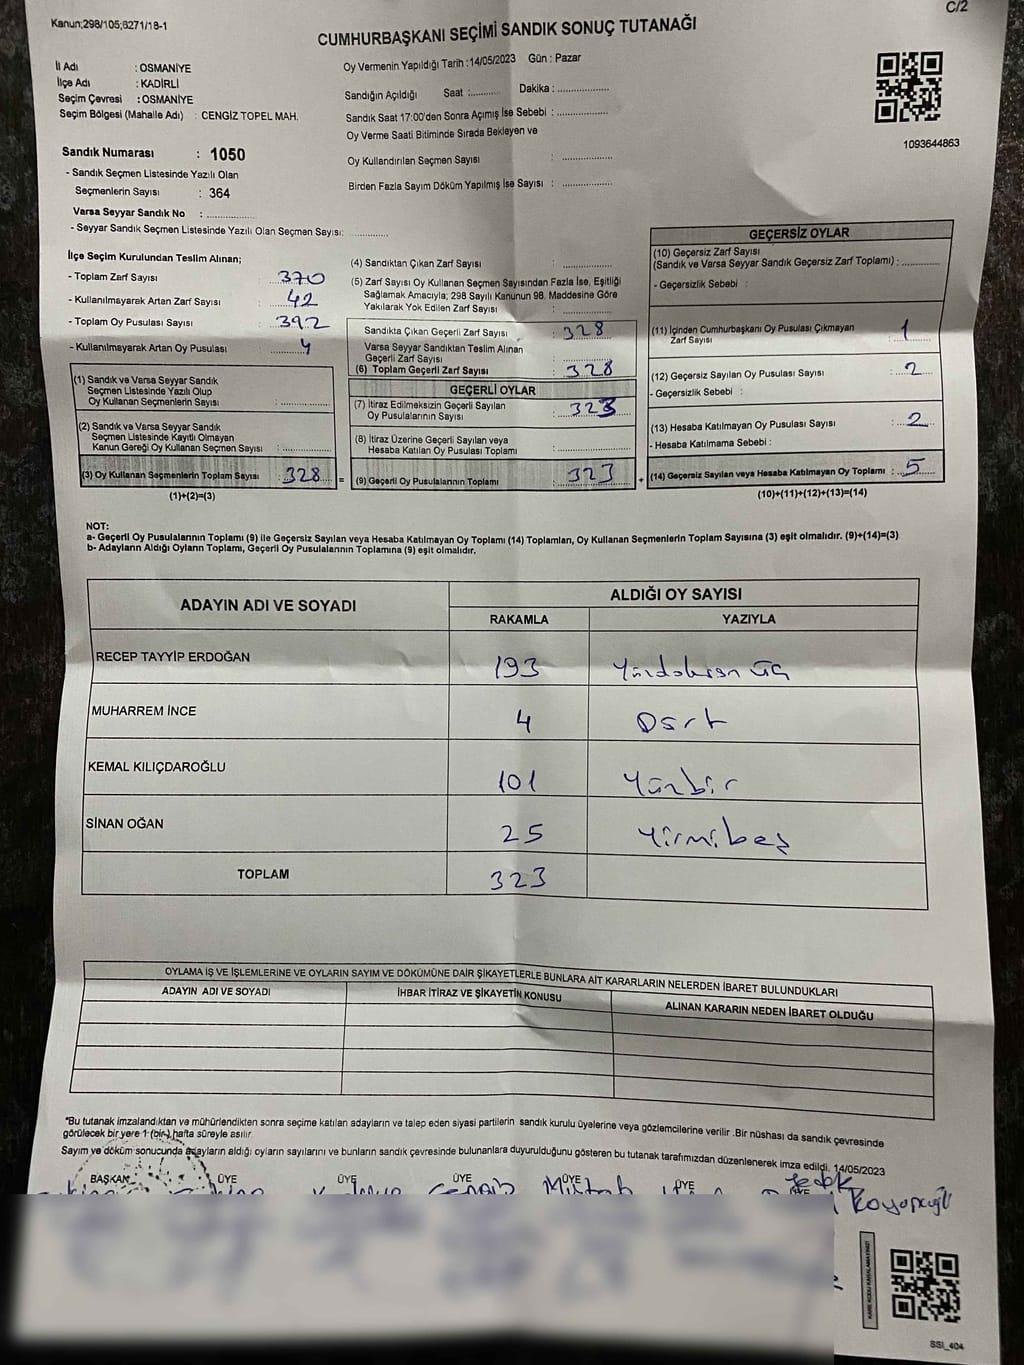 Kanun;298/105;6271/18-1
C/2
CUMHURBAŞKANI SEÇİMİ SANDIK SONUÇ TUTANAĞI
İl Adı : OSMANİYE
İlçe Adı : KADİRLİ
Seçim Çevresi : OSMANİYE
Seçim Bölgesi (Mahalle Adı) : CENGİZ TOPEL MAH.
Sandık Numarası : 1050
- Sandık Seçmen Listesinde Yazılı Olan
Seçmenlerin Sayısı : 364
Varsa Seyyar Sandık No : ..............
- Seyyar Sandık Seçmen Listesinde Yazılı Olan Seçmen Sayısı: ............
Oy Vermenin Yapıldığı Tarih : 14/05/2023 Gün : Pazar
Sandığın Açıldığı Saat :.......... Dakika : ................
Sandık Saat 17:00'den Sonra Açımış İse Sebebi : ................
Oy Verme Saati Bitiminde Sırada Bekleyen ve
Oy Kullandırılan Seçmen Sayısı : ................
Birden Fazla Sayım Döküm Yapılmış İse Sayısı : ................
1093644863
İlçe Seçim Kurulundan Teslim Alınan;
- Toplam Zarf Sayısı : 370
- Kullanılmayarak Artan Zarf Sayısı : 42
- Toplam Oy Pusulası Sayısı : 392
- Kullanılmayarak Artan Oy Pusulası : 4
(1) Sandık ve Varsa Seyyar Sandık
Seçmen Listesinde Yazılı Olup
Oy Kullanan Seçmenlerin Sayısı : ................
(2) Sandık ve Varsa Seyyar Sandık
Seçmen Listesinde Kayıtlı Olmayan
Kanun Gereği Oy Kullanan Seçmen Sayısı : ................
(3) Oy Kullanan Seçmenlerin Toplam Sayısı : 328 =
(1)+(2)=(3)
(4) Sandıktan Çıkan Zarf Sayısı : ................
(5) Zarf Sayısı Oy Kullanan Seçmen Sayısından Fazla İse, Eşitliği
Sağlamak Amacıyla; 298 Sayılı Kanunun 98. Maddesine Göre
Yakılarak Yok Edilen Zarf Sayısı : ................
Sandıkta Çıkan Geçerli Zarf Sayısı : 328
Varsa Seyyar Sandıktan Teslim Alınan
Geçerli Zarf Sayısı : ................
(6) Toplam Geçerli Zarf Sayısı : 328
GEÇERLİ OYLAR
(7) İtiraz Edilmeksizin Geçerli Sayılan
Oy Pusulalarının Sayısı : 323
(8) İtiraz Üzerine Geçerli Sayılan veya
Hesaba Katılan Oy Pusulası Toplamı : ................
(9) Geçerli Oy Pusulalarının Toplamı : 323 +
GEÇERSİZ OYLAR
(10) Geçersiz Zarf Sayısı
(Sandık ve Varsa Seyyar Sandık Geçersiz Zarf Toplamı) : ............
- Geçersizlik Sebebi :
(11) İçinden Cumhurbaşkanı Oy Pusulası Çıkmayan
Zarf Sayısı : 1
(12) Geçersiz Sayılan Oy Pusulası Sayısı : 2
- Geçersizlik Sebebi :
(13) Hesaba Katılmayan Oy Pusulası Sayısı : 2
- Hesaba Katılmama Sebebi :
(14) Geçersiz Sayılan veya Hesaba Katılmayan Oy Toplamı : 5
(10)+(11)+(12)+(13)=(14)
NOT:
a- Geçerli Oy Pusulalarının Toplamı (9) ile Geçersiz Sayılan veya Hesaba Katılmayan Oy Toplamı (14) Toplamları, Oy Kullanan Seçmenlerin Toplam Sayısına (3) eşit olmalıdır. (9)+(14)=(3)
b- Adayların Aldığı Oyların Toplamı, Geçerli Oy Pusulalarının Toplamına (9) eşit olmalıdır.
ADAYIN ADI VE SOYADI
ALDIĞI OY SAYISI
RAKAMLA YAZIYLA
RECEP TAYYİP ERDOĞAN 193 Yüzdoksan üç
MUHARREM İNCE 4 Dört
KEMAL KILIÇDAROĞLU 101 Yüzbir
SİNAN OĞAN 25 Yirmibeş
TOPLAM 323
OYLAMA İŞ VE İŞLEMLERİNE VE OYLARIN SAYIM VE DÖKÜMÜNE DAİR ŞİKAYETLERLE BUNLARA AİT KARARLARIN NELERDEN İBARET BULUNDUKLARI
ADAYIN ADI VE SOYADI İHBAR İTİRAZ VE ŞİKAYETİN KONUSU ALINAN KARARIN NEDEN İBARET OLDUĞU
*Bu tutanak imzalandıktan ve mühürlendikten sonra seçime katılan adayların ve talep eden siyasi partilerin sandık kurulu üyelerine veya gözlemcilerine verilir .Bir nüshası da sandık çevresinde
görülecek bir yere 1 (bir) hafta süreyle asılır.
Sayım ve döküm sonucunda adayların aldığı oyların sayılarını ve bunların sandık çevresinde bulunanlara duyurulduğunu gösteren bu tutanak tarafımızdan düzenlenerek imza edildi. 14/05/2023
BAŞKAN ÜYE ÜYE ÜYE ÜYE ÜYE ÜYE
SSI_404